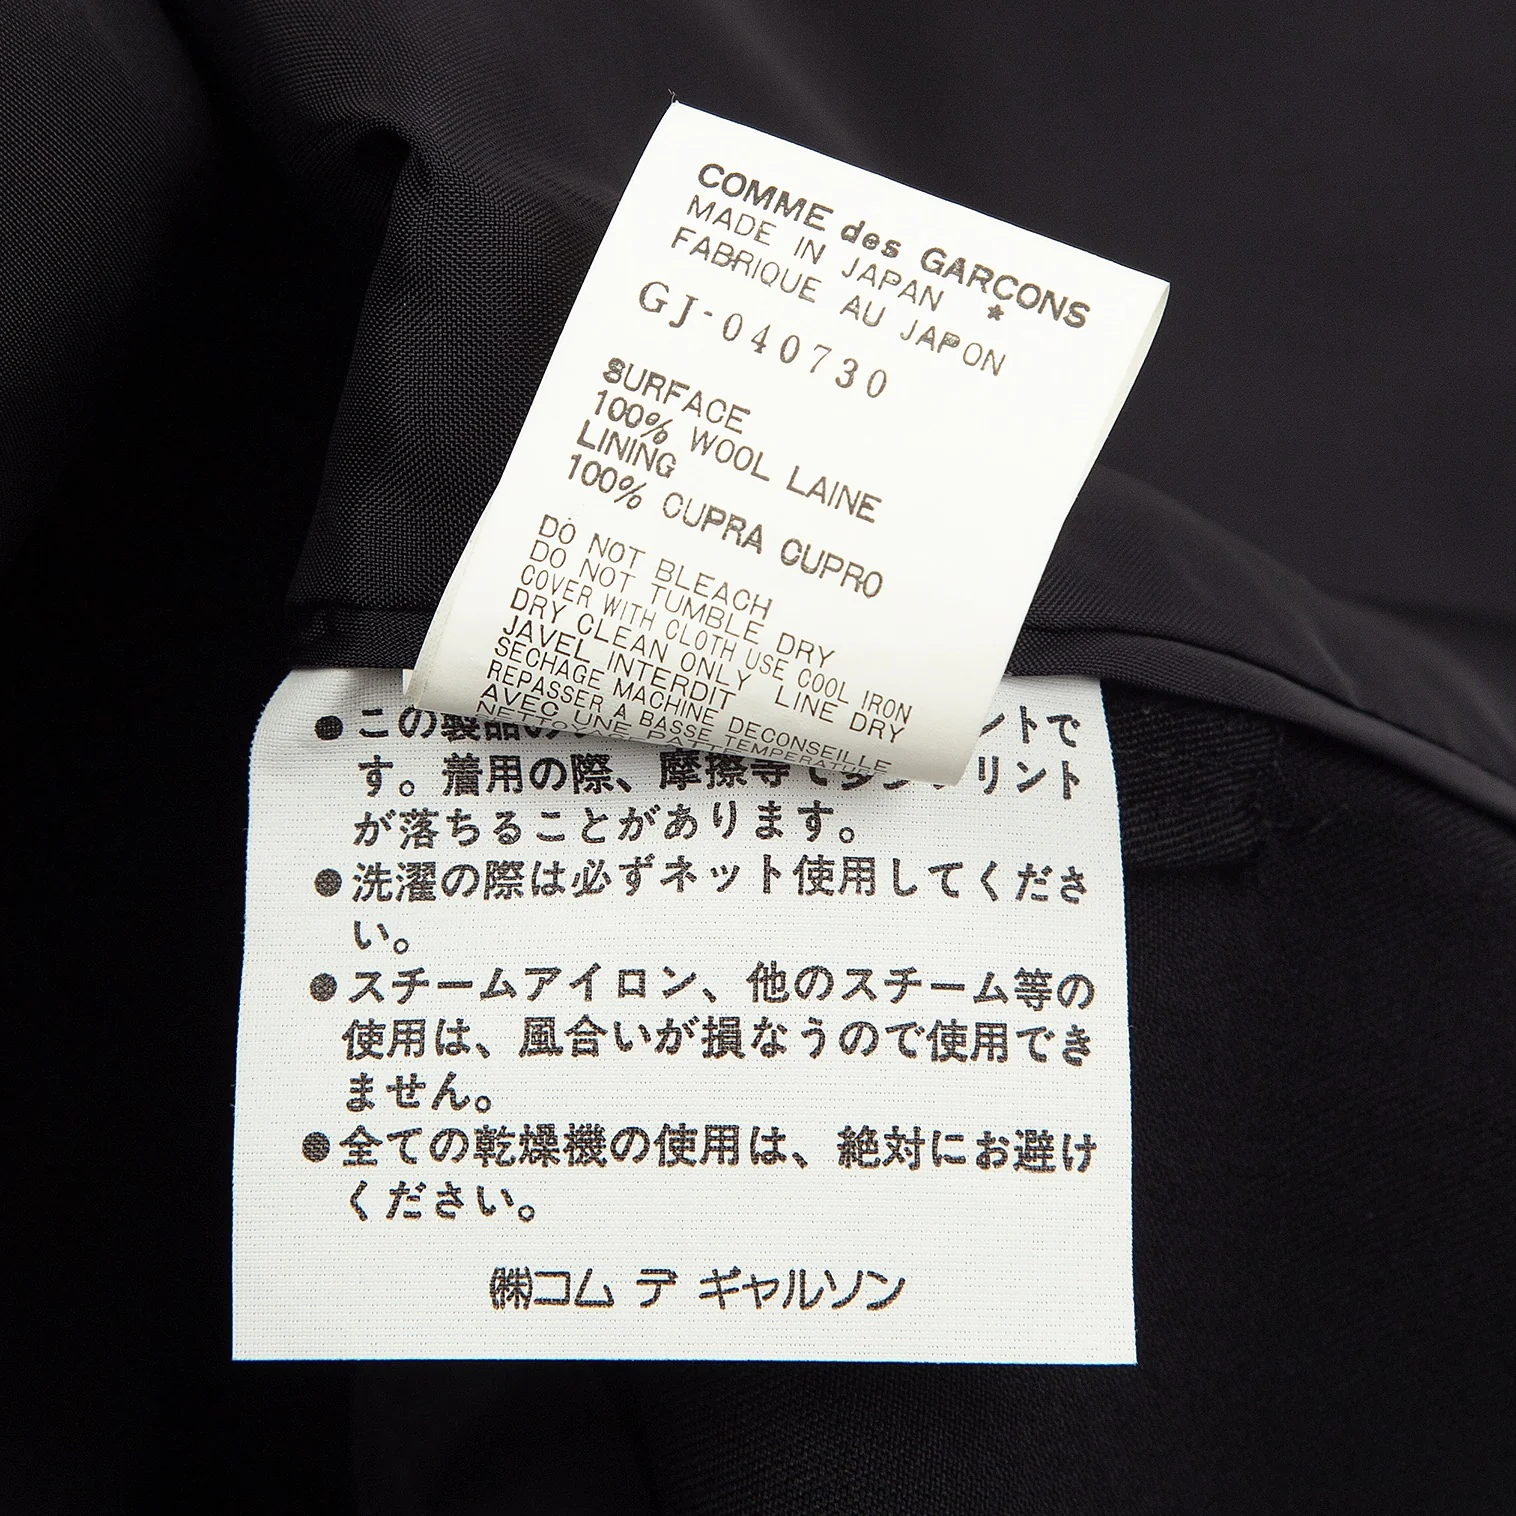 COMME des GARÇONS
MADE IN JAPAN *
FABRIQUE AU JAPON
GJ-040730
SURFACE
100% WOOL LAINE
LINING
100% CUPRA CUPRO
DO NOT BLEACH
DO NOT TUMBLE DRY
COVER WITH CLOTH USE COOL IRON
DRY CLEAN ONLY LINE DRY
JAVEL INTERDIT
SECHAGE MACHINE DECONSEILLE
REPASSER A BASSE TEMPERATURE
AVEC UNE PATTE
●この製品の ントで
す。着用の際、摩擦等で リント
が落ちることがあります。
●洗濯の際は必ずネット使用してくださ
い。
●スチームアイロン、他のスチーム等の
使用は、風合いが損なうので使用でき
ません。
●全ての乾燥機の使用は、絶対にお避け
ください。
㈱コム デ ギャルソン